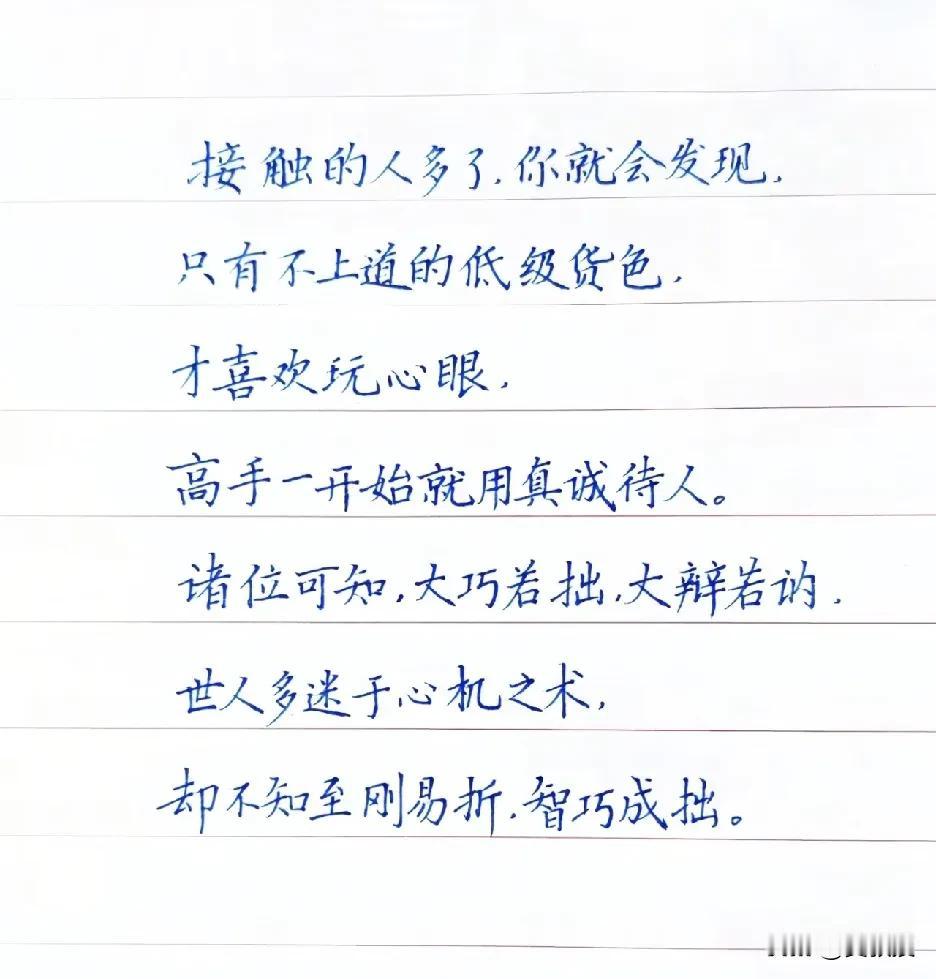 接触的人多了,你就会发现,
只有不上道的低级货色,
才喜欢玩心眼,
高手一开始就用真诚待人。
诸位可知,大巧若拙,大辩若讷,
世人多迷于心机之术,
却不知至刚易折,智巧成拙。